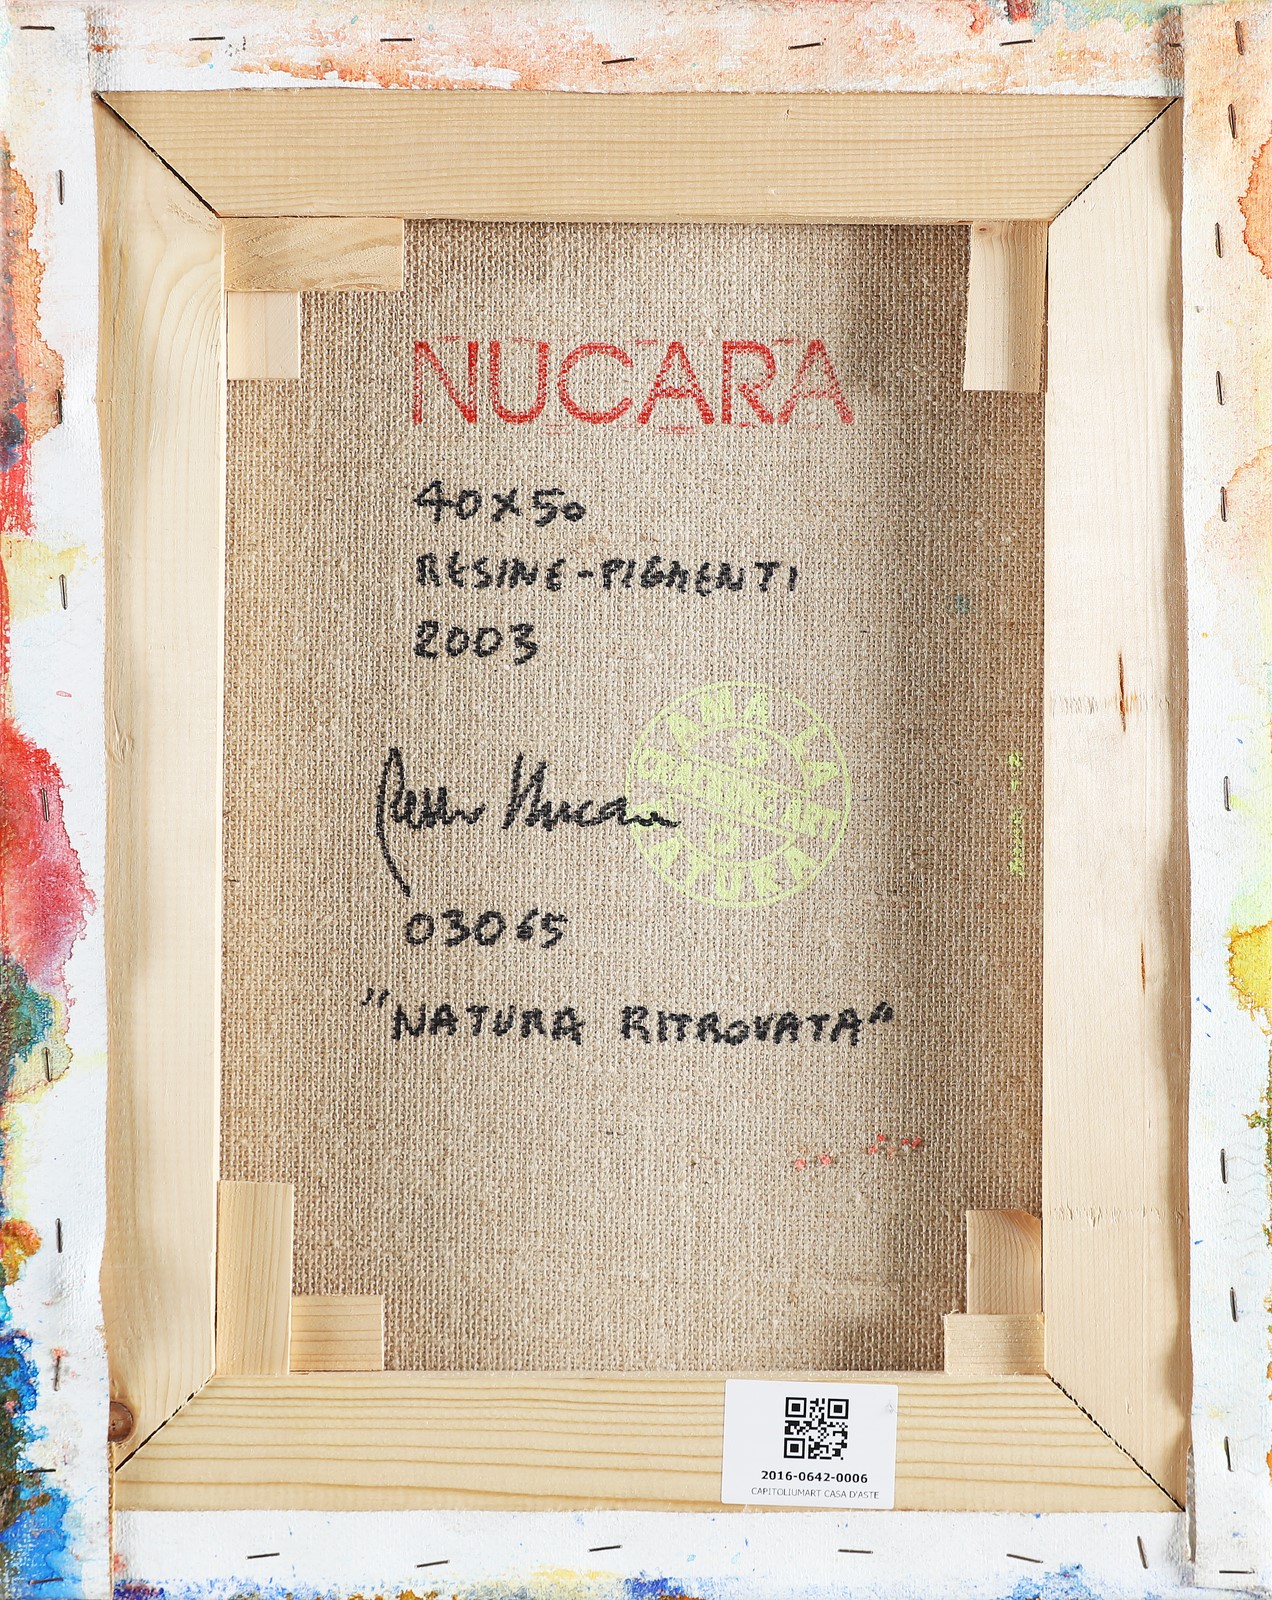 NUCARA
40X50
RESINE-PIGMENTI
2003
AMA LA
CRACKING ART
NATURA
Nucara
03065
"NATURA RITROVATA"
2016-0642-0006
CAPITOLIUMART CASA D'ASTE